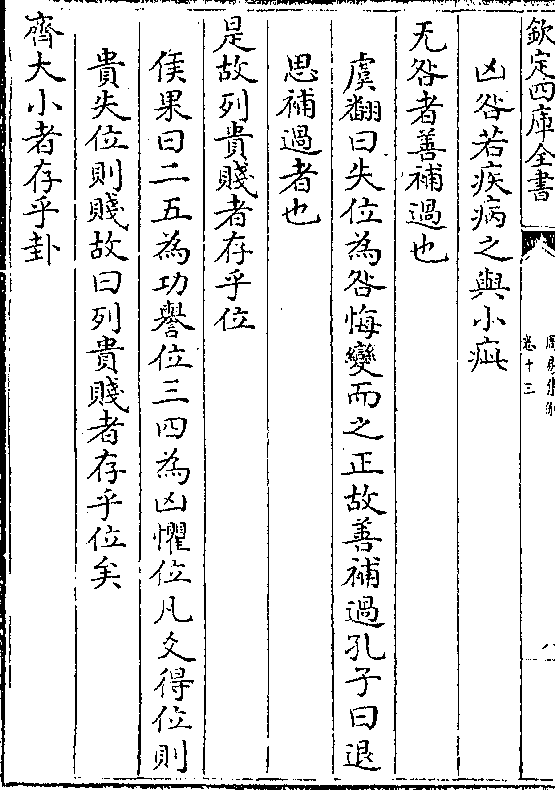 欽定四庫全書
周易集解
卷十三
凶咎若疾病之與小疵
无咎者善補過也
虞翻曰失位為咎悔變而之正故善補過孔子曰退
思補過者也
是故列貴賤者存乎位
侯果曰二五為功譽位三四為凶懼位凡爻得位則
貴失位則賤故曰列貴賤者存乎位矣
齊大小者存乎卦